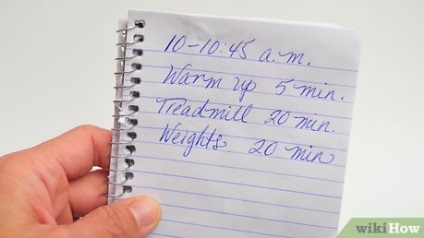 10-10:45 a.m.
Warm up 5 min.
Treadmill 20 min.
Weights 20 min
wikiHow